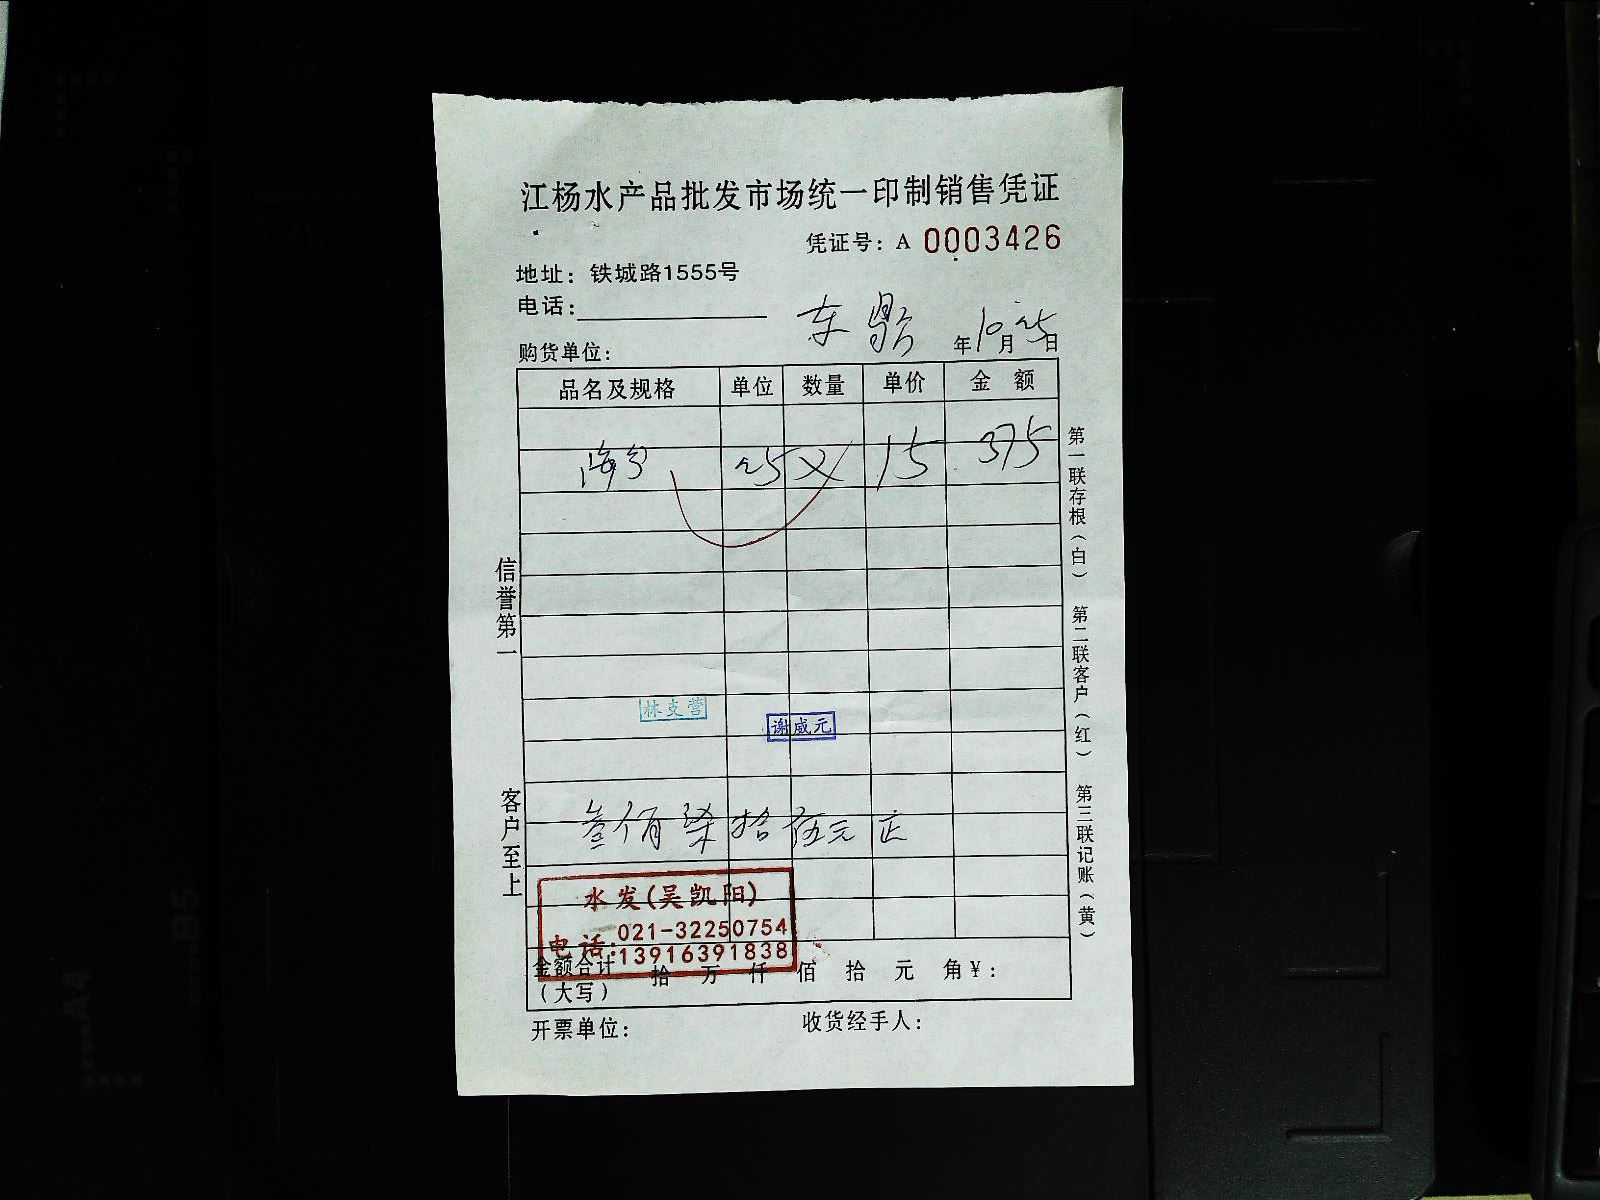 江杨水产品批发市场统一印制销售凭证
凭证号: A 0003426
地址: 铁城路1555号
电话:
购货单位: 东 年10月25日
品名及规格 单位 数量 单价 金 额
海 25 15 375
叁佰柒拾伍元正
林支营
谢威元
水发(吴凯阳)
电话:021-32250754
13916391838
金额合计(大写) 拾 万 仟 佰 拾 元 角¥:
开票单位: 收货经手人:
信誉第一
客户至上
第一联存根(白) 第二联客户(红) 第三联记账(黄)
A4
B5